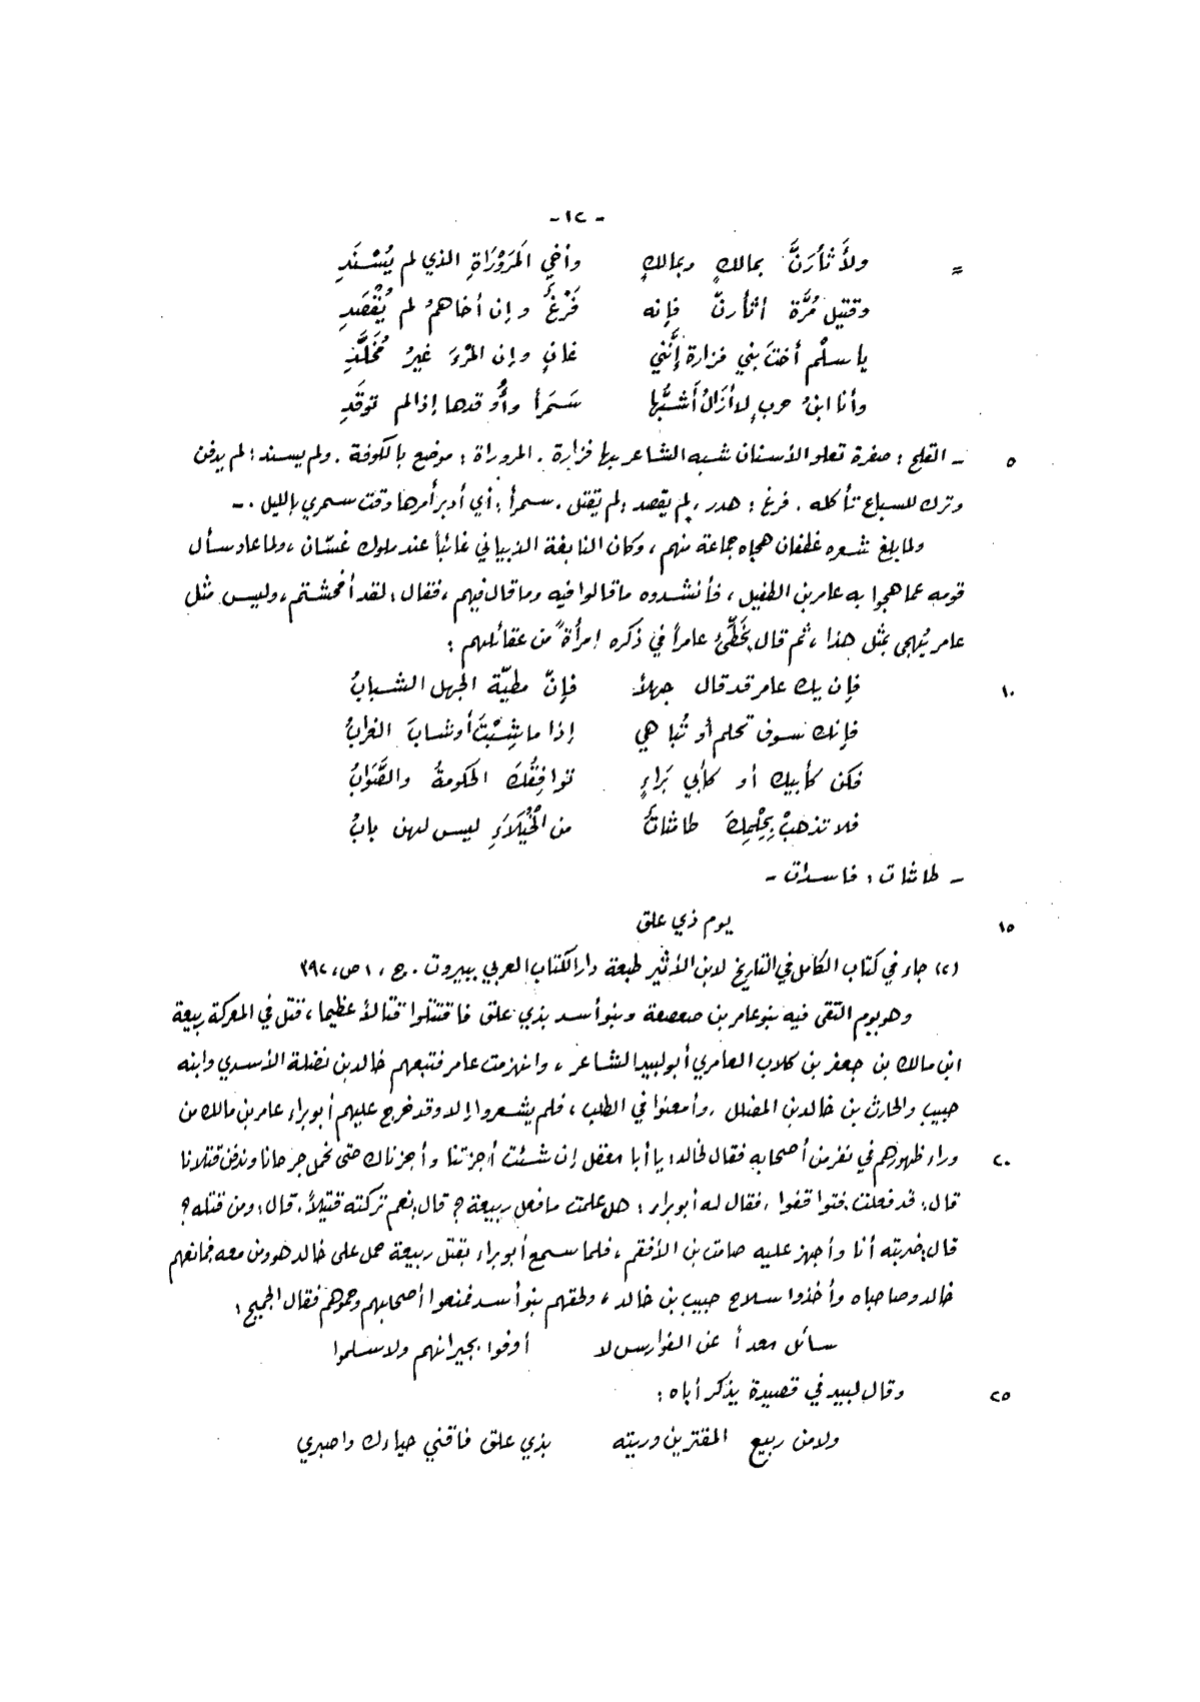 - ١٢ -
= ولأَثأرَنَّ بمالكٍ وبمالكٍ وأخي المَرَوْرَاةِ الذي لم يُسْنَدِ
وقتيل مُرَّة أثأرنّ فإنه فَرْغٌ وإن أخاهمُ لم يُقْصَدِ
يا سلْم أختَ بني فزارة إنَّني غانٍ وإن المرْءَ غيرُ مُخَلَّدِ
وأنا ابنُ حربٍ لا أزَالُ أَشبُّها سَمَراً وأُوقدها إذا لم توقَدِ
٥ - القلح : صفرة تعلو الأسنان شبه الشاعر بها فزارة . المروراة : موضع بالكوفة . ولم يسند : لم يدفن
وترك للسباع تأكله . فرغ : هدر ، لم يقصد : لم يقتل . سمراً : أي أدبر أمرها وقت سمري بالليل . -
ولما بلغ شعره غطفان هجاه جماعة منهم ، وكان النابغة الذبياني غائباً عند ملوك غسّان ، ولما عاد سأل
قومه عما هجوا به عامر بن الطفيل ، فأنشدوه ما قالوا فيه وما قال فيهم ، فقال : لقد أفحشتم ، وليس مثل
عامر يُهجى بمثل هذا ، ثم قال يُخَطِّئُ عامراً في ذكره امرأةً من عقائلهم :
١٠ فإن يك عامر قد قال جهلاً فإنّ مطيّة الجهل الشبابُ
فإنك سوف تحلم أو تُباهي إذا ما شِبْتَ أو شابَ الغرابُ
فكن كأبيك أو كأبي بَراءٍ توافِقْكَ الحكومةُ والصَّوَابُ
فلا تذهبْ بِحِلْمِكَ طائثاتٌ من الخُيَلَاءِ ليس لهن بابُ
- طائثات : فاسدات -
١٥ يوم ذي علق
(٢) جاء في كتاب الكامل في التاريخ لابن الأثير طبعة دار الكتاب العربي ببيروت . ج ، ١ ص ، ٣٩٢
وهو يوم التقى فيه بنو عامر بن صعصعة وبنو أسد بذي علق فاقتتلوا قتالاً عظيما ، قتل في المعركة ربيعة
ابن مالك بن جعفر بن كلاب العامري أبو لبيد الشاعر ، وانهزمت عامر فتبعهم خالد بن نضلة الأسدي وابنه
حبيب والحارث بن خالد بن المضلل . وأمعنوا في الطلب ، فلم يشعروا إلا وقد خرج عليهم أبو براء عامر بن مالك من
٢٠ وراء ظهورهم في نفر من أصحابه فقال لخالد : يا أبا معقل إن شئت أجزتنا وأجزناك حتى نحمل جرحانا وندفن قتلانا
قال : قد فعلت . فتواقفوا . فقال له أبو براء : هل علمت ما فعل ربيعة ؟ قال : نعم تركته قتيلاً . قال : ومن قتله ؟
قال : ضربته أنا وأجهز عليه صامت بن الأفقم ، فلما سمع أبو براء بقتل ربيعة حمل على خالد هو ومن معه فمانعهم
خالد وصاحباه وأخذوا سلاح حبيب بن خالد ، ولحقهم بنو أسد فمنعوا أصحابهم وحموهم فقال الجميح :
سائل معداً عن الفوارس لا أوفوا بجيرانهم ولا سلموا
٢٥ وقال لبيد في قصيدة يذكر أباه :
ولا من ربيع المقترين وريته بذي علق فاقني حياءك واصبري